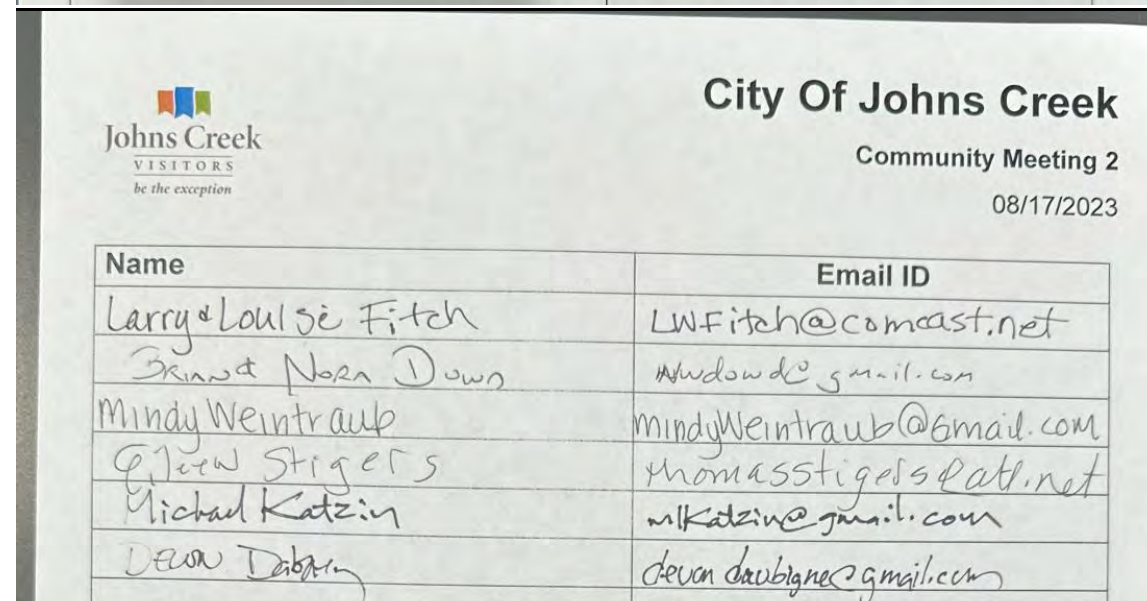 Johns Creek
VISITORS
be the exception
City Of Johns Creek
Community Meeting 2
08/17/2023
Name Email ID
Larry & Louise Fitch LWFitch@comcast.net
& Nora @gmail.com
Mindy Weintraub mindyWeintraub@Gmail.com
Stigers thomasstigers@att.net
Michael Katzin mlkatzin@gmail.com
Devon devondaubigne@gmail.com